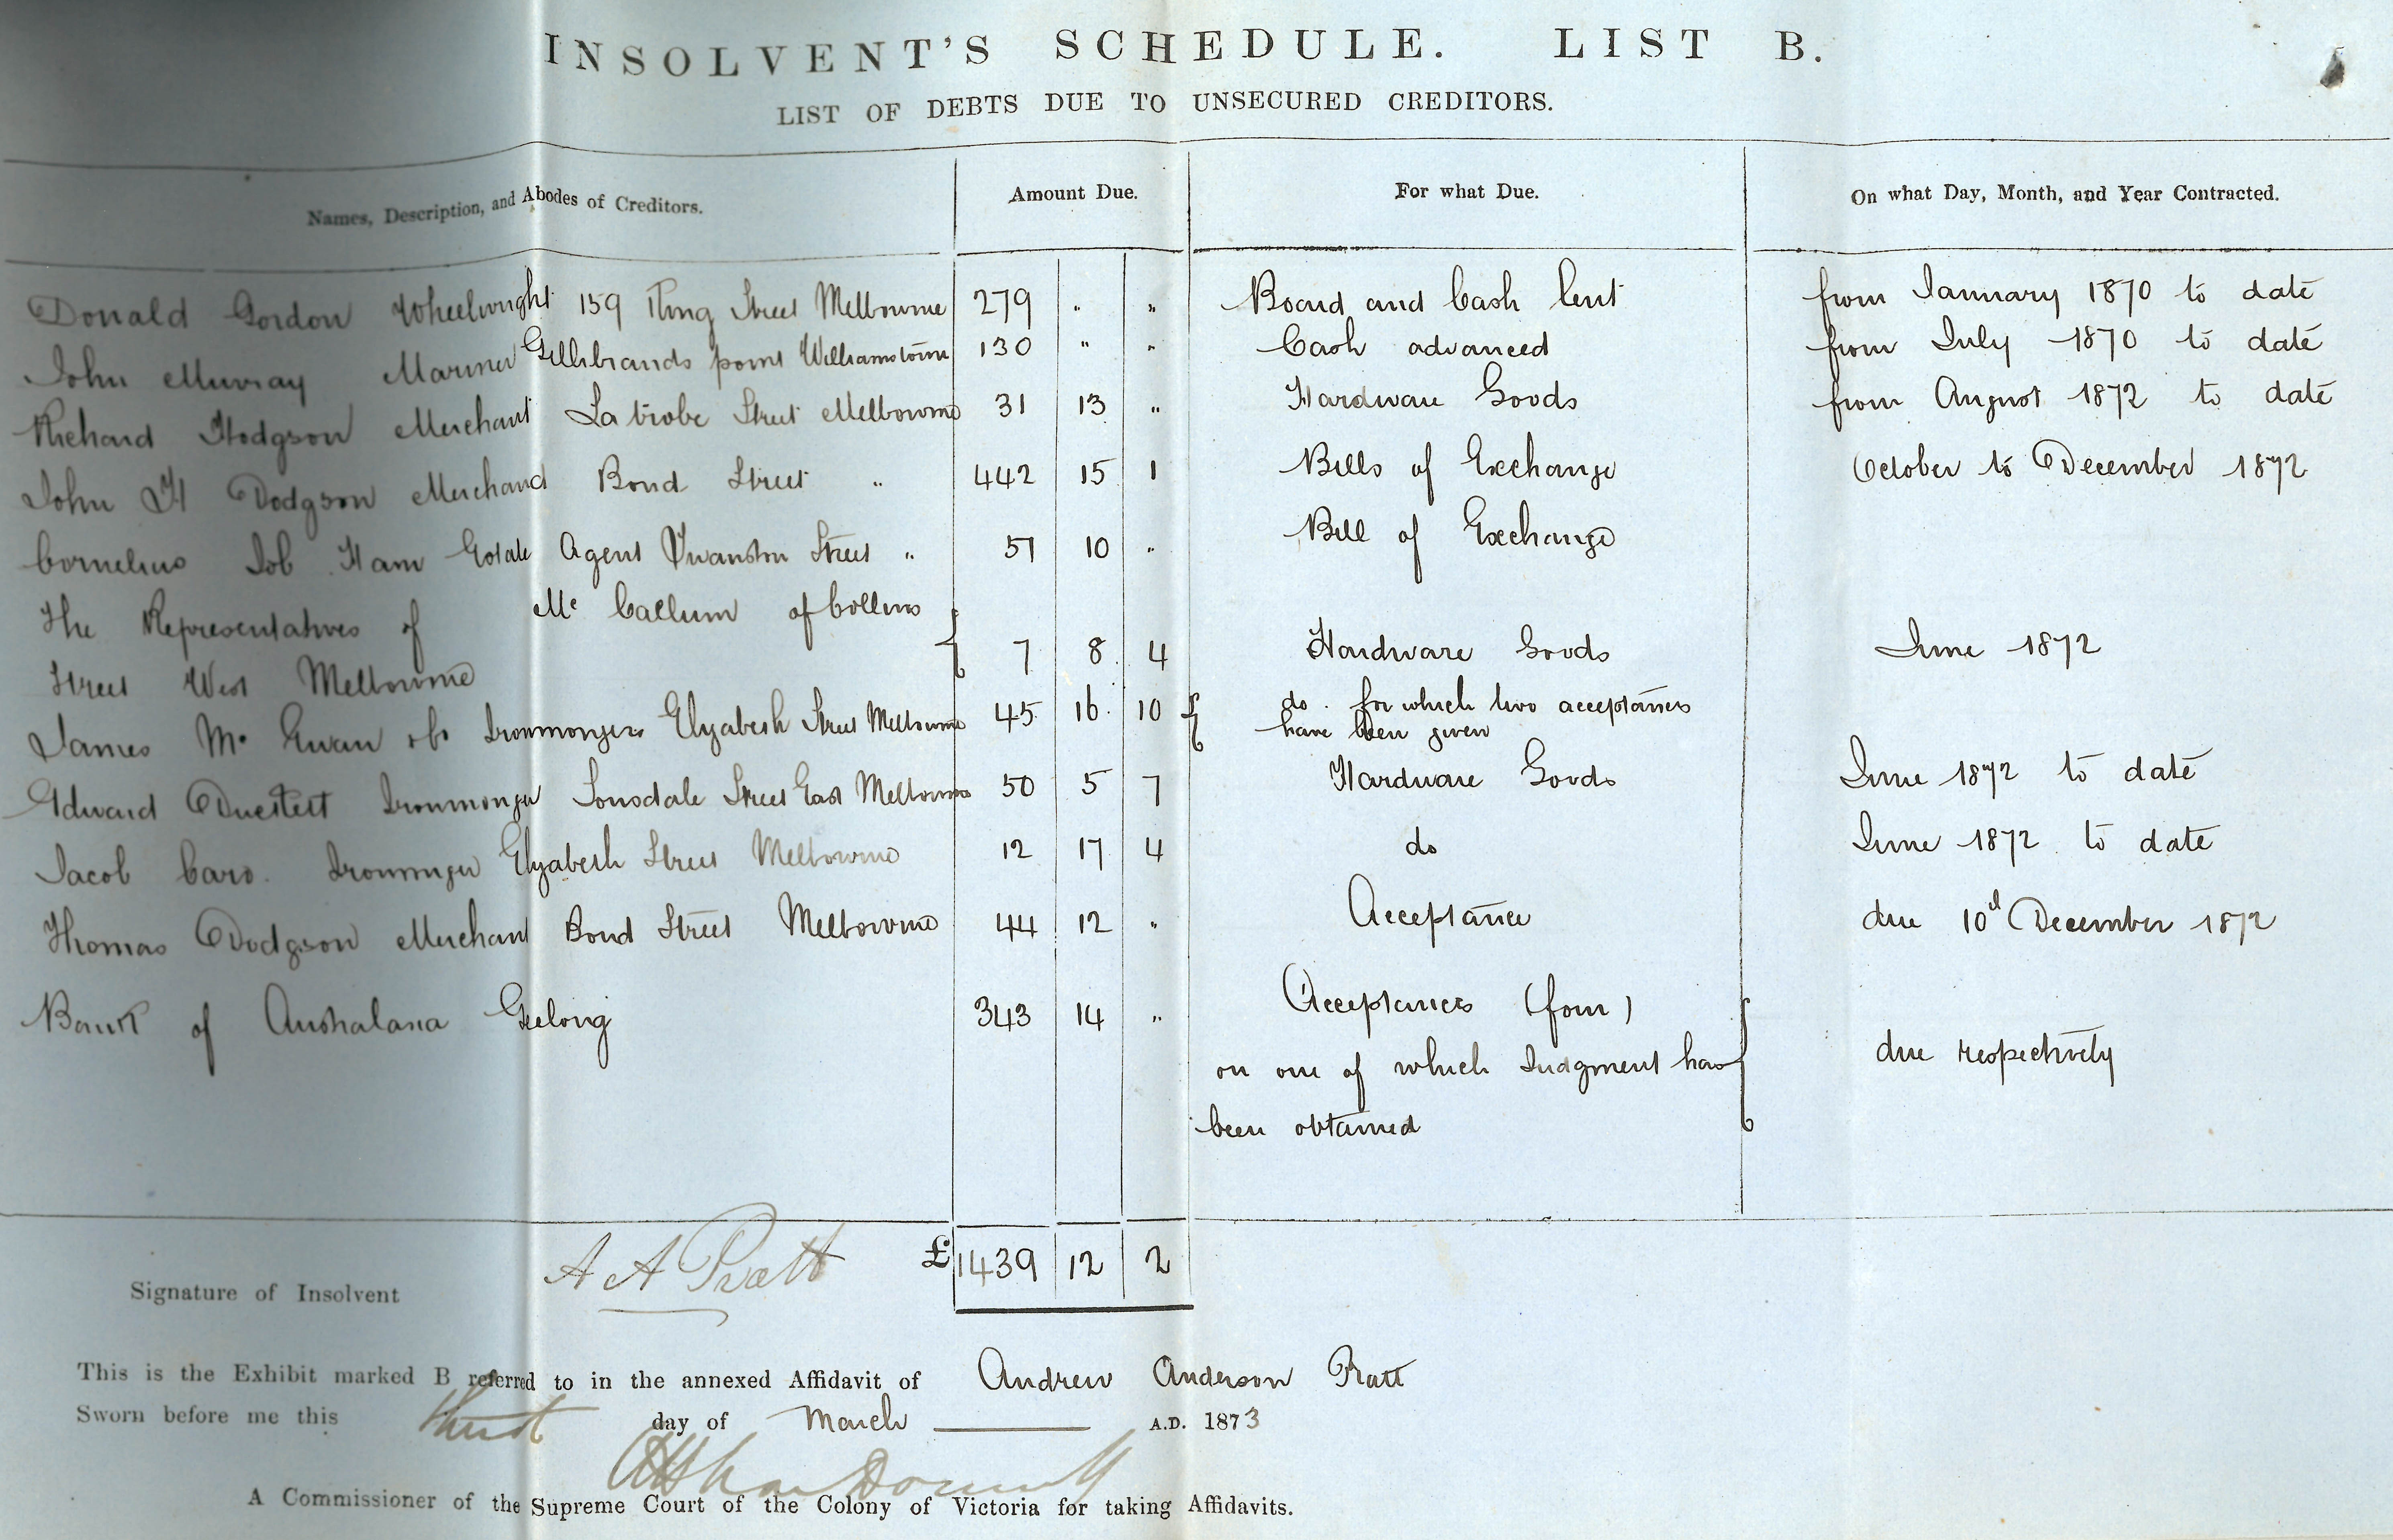 INSOLVENT'S SCHEDULE. LIST B.
LIST OF DEBTS DUE TO UNSECURED CREDITORS.
Names, Description, and Abodes of Creditors. Amount Due. For what Due. On what Day, Month, and Year Contracted.
Donald Gordon Wheelwright 159 King Street Melbourne 279 " " Board and Cash lent from January 1870 to date
John Murray Mariner Gellibrands point Williamstown 130 " " Cash advanced from July 1870 to date
Richard Hodgson Merchant La trobe Street Melbourne 31 13 " Hardware Goods from August 1872 to date
John H Dodgson Merchand Bond Street " 442 15 1 Bills of Exchange October to December 1872
Cornelius Job Ham Estate Agent Swanston Street " 51 10 " Bill of Exchange
The Representatives of Mc Callum of Collins
Street West Melbourne 7 8 4 Hardware Goods June 1872
James Mc Ewan & Co Ironmongers Elizabeth Street Melbourne 45 16 10 do. for which two acceptances
have been given
Edward Ironmonger Lonsdale Street East Melbourne 50 5 7 Hardware Goods June 1872 to date
Jacob Caro. Ironmonger Elizabeth Street Melbourne 12 17 4 do June 1872 to date
Thomas Dodgson Merchant Bond Street Melbourne 44 12 " Acceptance due 10th December 1872
Bank of Australasia Geelong 343 14 " Acceptances (four)
on one of which Judgment has due respectively
been obtained
Signature of Insolvent A A Pratt £ 1439 12 2
This is the Exhibit marked B referred to in the annexed Affidavit of Andrew Anderson Pratt
Sworn before me this first day of March A.D. 1873
A Commissioner of the Supreme Court of the Colony of Victoria for taking Affidavits.